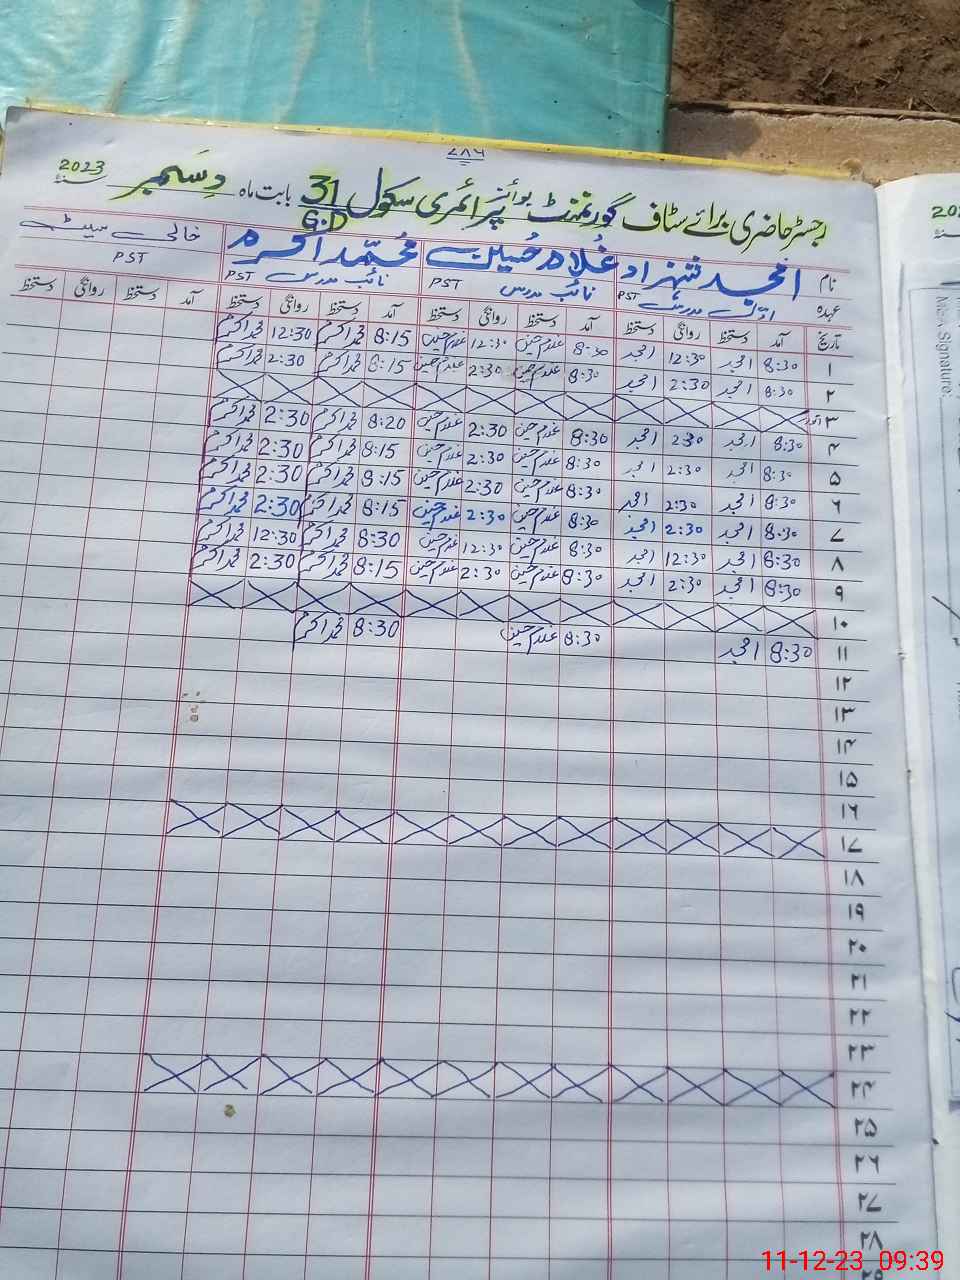 ۷۸۶
رجسٹر حاضری برائے سٹاف گورنمنٹ بوائز پرائمری سکول 31 G.D بابت ماہ دسمبر 2023
نام امجد شہزاد غلام حسین محمد اکرم خالی سیٹ
عہدہ PST اول مدرس PST نائب مدرس PST نائب مدرس PST
تاریخ آمد دستخط روانگی دستخط آمد دستخط روانگی دستخط آمد دستخط روانگی دستخط آمد دستخط روانگی دستخط
۱ 8:30 امجد 12:30 امجد 8:30 غلام حسین 12:30 غلام حسین 8:15 محمد اکرم 12:30 محمد اکرم
۲ 8:30 امجد 2:30 امجد 8:30 غلام حسین 2:30 غلام حسین 8:15 محمد اکرم 2:30 محمد اکرم
۳ اتوار
۴ 8:30 امجد 2:30 امجد 8:30 غلام حسین 2:30 غلام حسین 8:20 محمد اکرم 2:30 محمد اکرم
۵ 8:30 امجد 2:30 امجد 8:30 غلام حسین 2:30 غلام حسین 8:15 محمد اکرم 2:30 محمد اکرم
۶ 8:30 امجد 2:30 امجد 8:30 غلام حسین 2:30 غلام حسین 8:15 محمد اکرم 2:30 محمد اکرم
۷ 8:30 امجد 2:30 امجد 8:30 غلام حسین 2:30 غلام حسین 8:15 محمد اکرم 2:30 محمد اکرم
۸ 8:30 امجد 12:30 امجد 8:30 غلام حسین 12:30 غلام حسین 8:30 محمد اکرم 12:30 محمد اکرم
۹ 8:30 امجد 2:30 امجد 8:30 غلام حسین 2:30 غلام حسین 8:15 محمد اکرم 2:30 محمد اکرم
۱۰
۱۱ 8:30 امجد 8:30 غلام حسین 8:30 محمد اکرم
۱۲
۱۳
۱۴
۱۵
۱۶
۱۷
۱۸
۱۹
۲۰
۲۱
۲۲
۲۳
۲۴
۲۵
۲۶
۲۷
۲۸
۲۹
Signature:
11-12-23 09:39